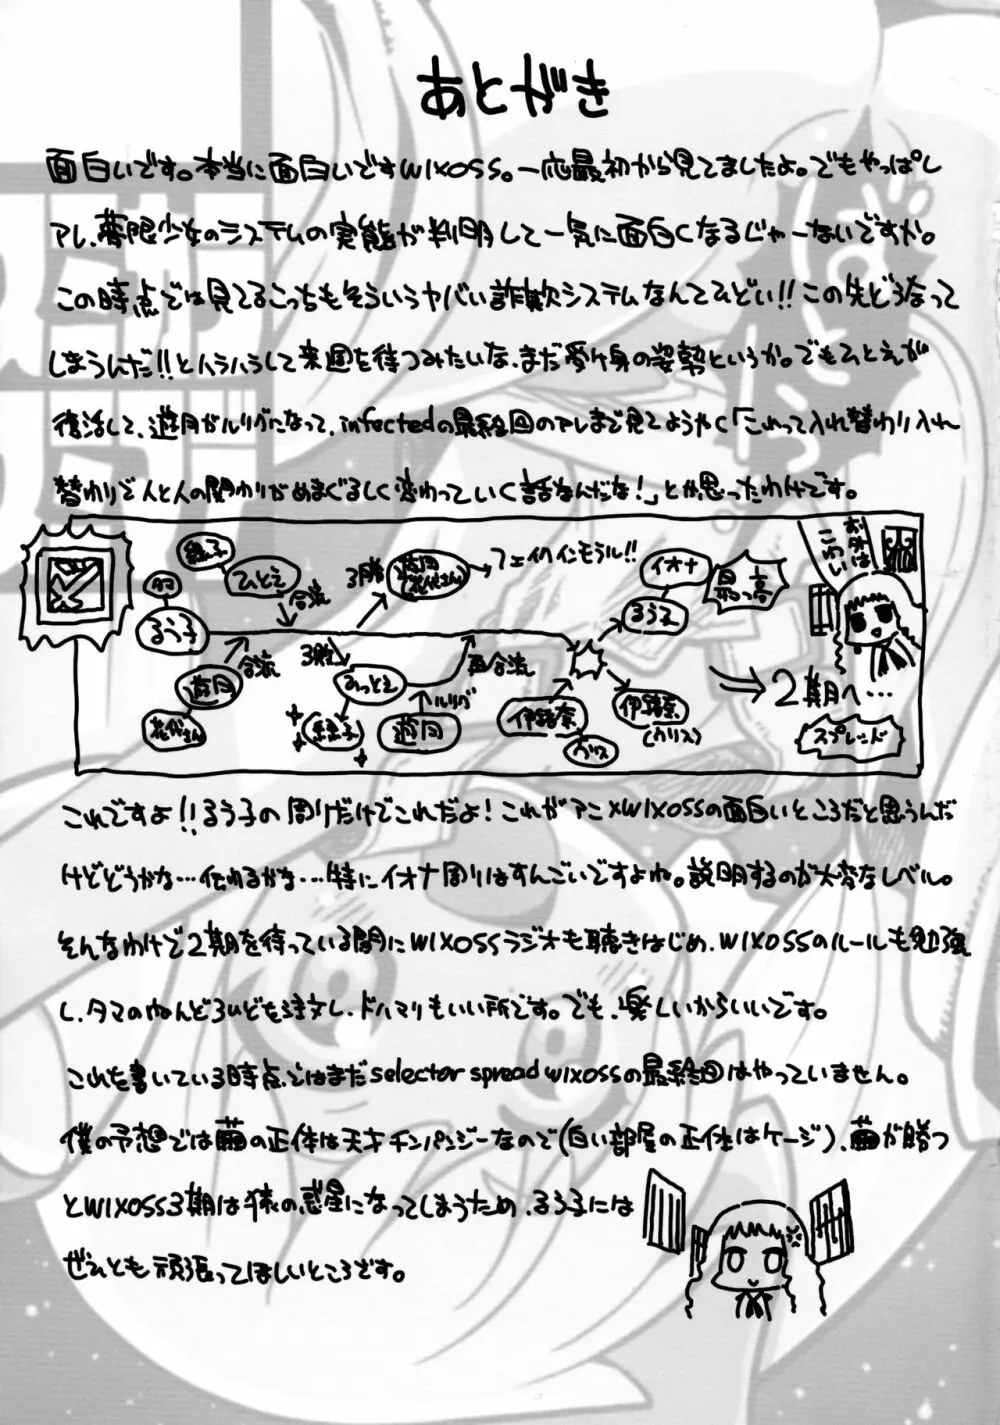 あとがき
面白いです。本当に面白いですWIXOSS。一応最初から見てましたよ。でもやっぱし
アレ、夢限少女のシステムの実態が判明して一気に面白くなるじゃーないですか。
この時点では見てるこっちもそういうヤバい詐欺システムなんてひどい!!この先どうなって
しまうんだ!!とハラハラして来週を待つみたいな、まだ受け身の姿勢というか。でもひとえが
復活して、遊月がルリグになって、infectedの最終回のアレまで見てようやく「これって入れ替わり入れ
替わりで人と人の関わりがめまぐるしく変わっていく話なんだな!」とか思ったわけです。
タマ
るう子
緑子
ひとえ
合流
遊月
花代さん
合流
3勝
遊月
(花代さん)
フェイクインモラル!!
3敗
ひとえ
緑子
再合流
ルリグ
遊月
伊緒奈
ウリス
伊緒奈
(ウリス)
イオナ
るう子
最っ高
2期へ…
スプレッド
お外は
こわい
これですよ!!るう子の周りだけでこれだよ!これがアニメWIXOSSの面白いところだと思うんだ
けどどうかな…伝わるかな…特にイオナ周りはすんごいですよね。説明するのが大変なレベル。
そんなわけで2期を待っている間にWIXOSSラジオも聴きはじめ、WIXOSSのルールも勉強
し、タマのねんどろいども注文し、ドハマリもいい所です。でも、楽しいからいいです。
これを書いている時点ではまだselector spread wixossの最終回はやっていません。
僕の予想では繭の正体は天才チンパンジーなので(白い部屋の正体はケージ)、繭が勝つ
とWIXOSS3期は猿の惑星になってしまうため、るう子には
ぜひとも頑張ってほしいところです。